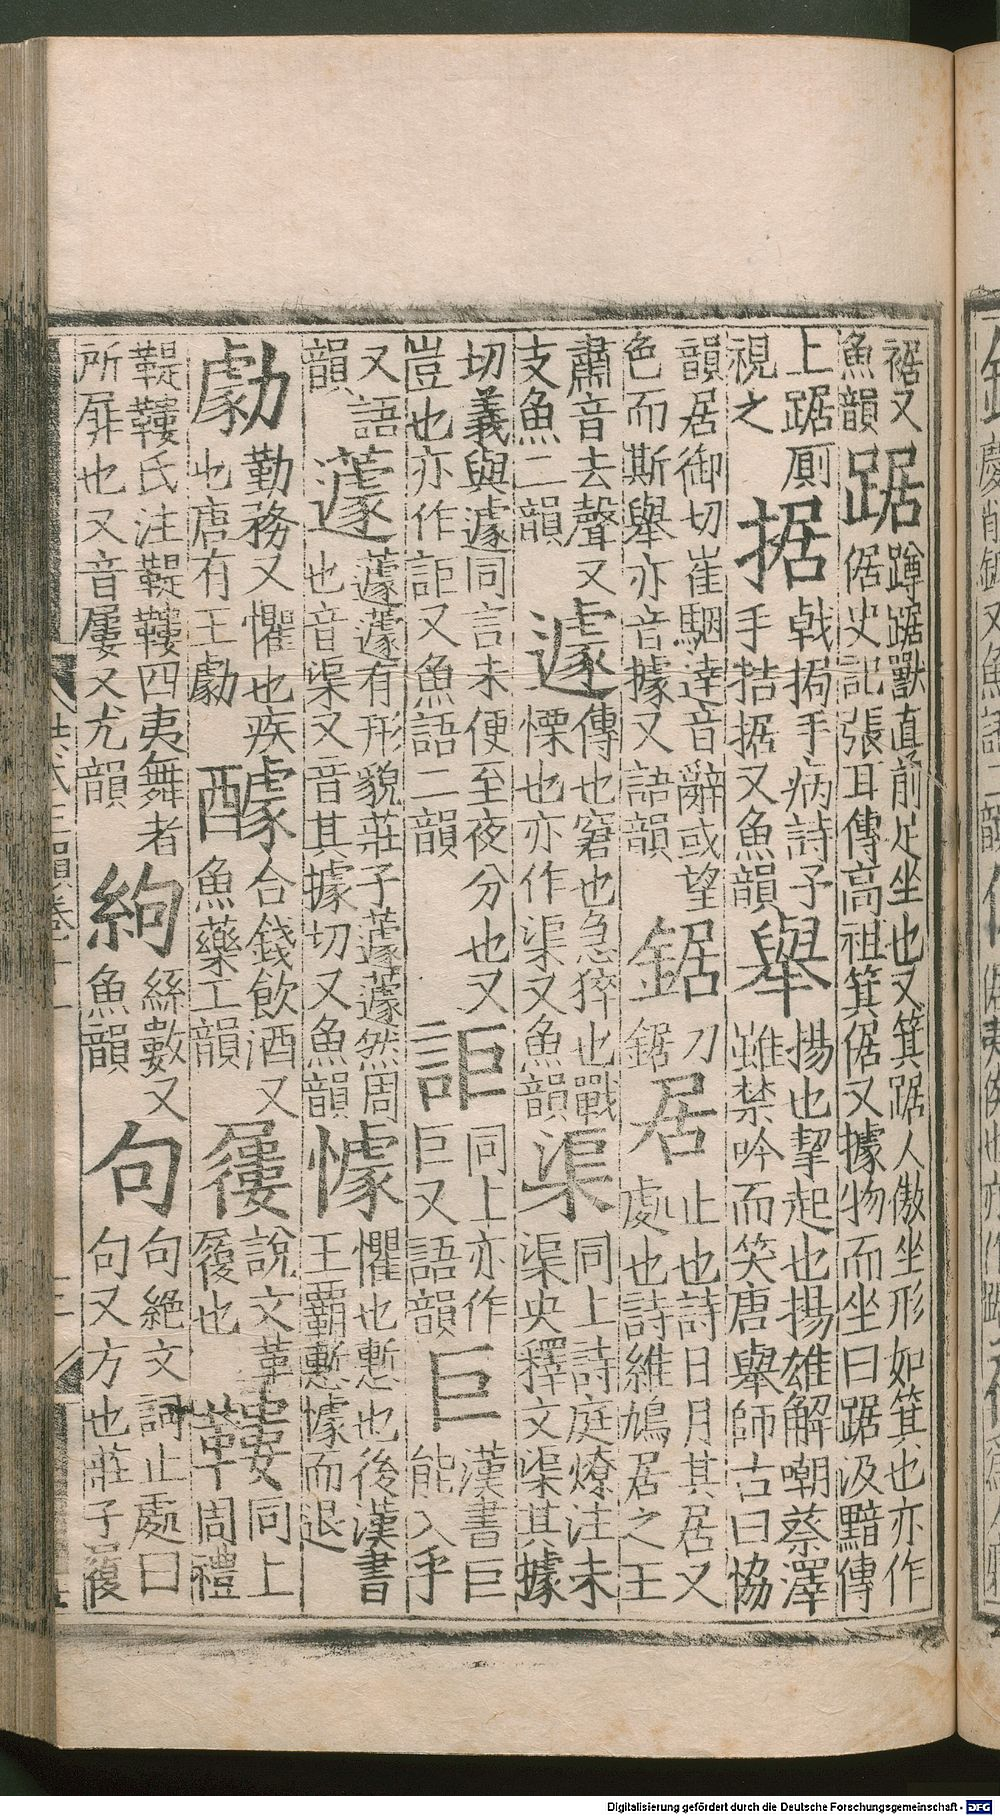 裾又魚韻 踞 蹲踞獸直前足坐也又箕踞人傲坐形如箕也亦作倨史記張耳傳高祖箕倨又據物而坐曰踞汲黯傳
上踞厠視之 据 戟挶手病詩予手拮据又魚韻 舉 揚也挈起也揚雄解嘲蔡澤雖禁吟而笑唐舉師古曰協
韻居御切崔駰達音辭或望色而斯舉亦音據又語韻 鋸 刀鋸 居 止也詩日月其居又處也詩維鳩居之王
肅音去聲又支魚二韻 遽 傳也窘也急猝也戰慄也亦作渠又魚韻 渠 同上詩庭燎注未渠央釋文渠其據
切義與遽同言未便至夜分也又豈也亦作詎又魚語二韻 詎 同上亦作巨又語韻 巨 漢書巨能入乎
又語韻 蘧 蘧蘧有形貌莊子蘧蘧然周也音渠又音其據切又魚韻 懅 懼也慙也後漢書王霸慙懅而退
勮 勤務又懼也疾也唐有王勮 醵 合錢飲酒又魚藥工韻 屨 說文革履也 鞻 同上周禮
鞮鞻氏注鞮鞻四夷舞者所屝也又音屢又尤韻 絇 絲數又魚韻 句 句絶文詞止處曰句又方也莊子履
Digitalisierung gefördert durch die Deutsche Forschungsgemeinschaft - DFG